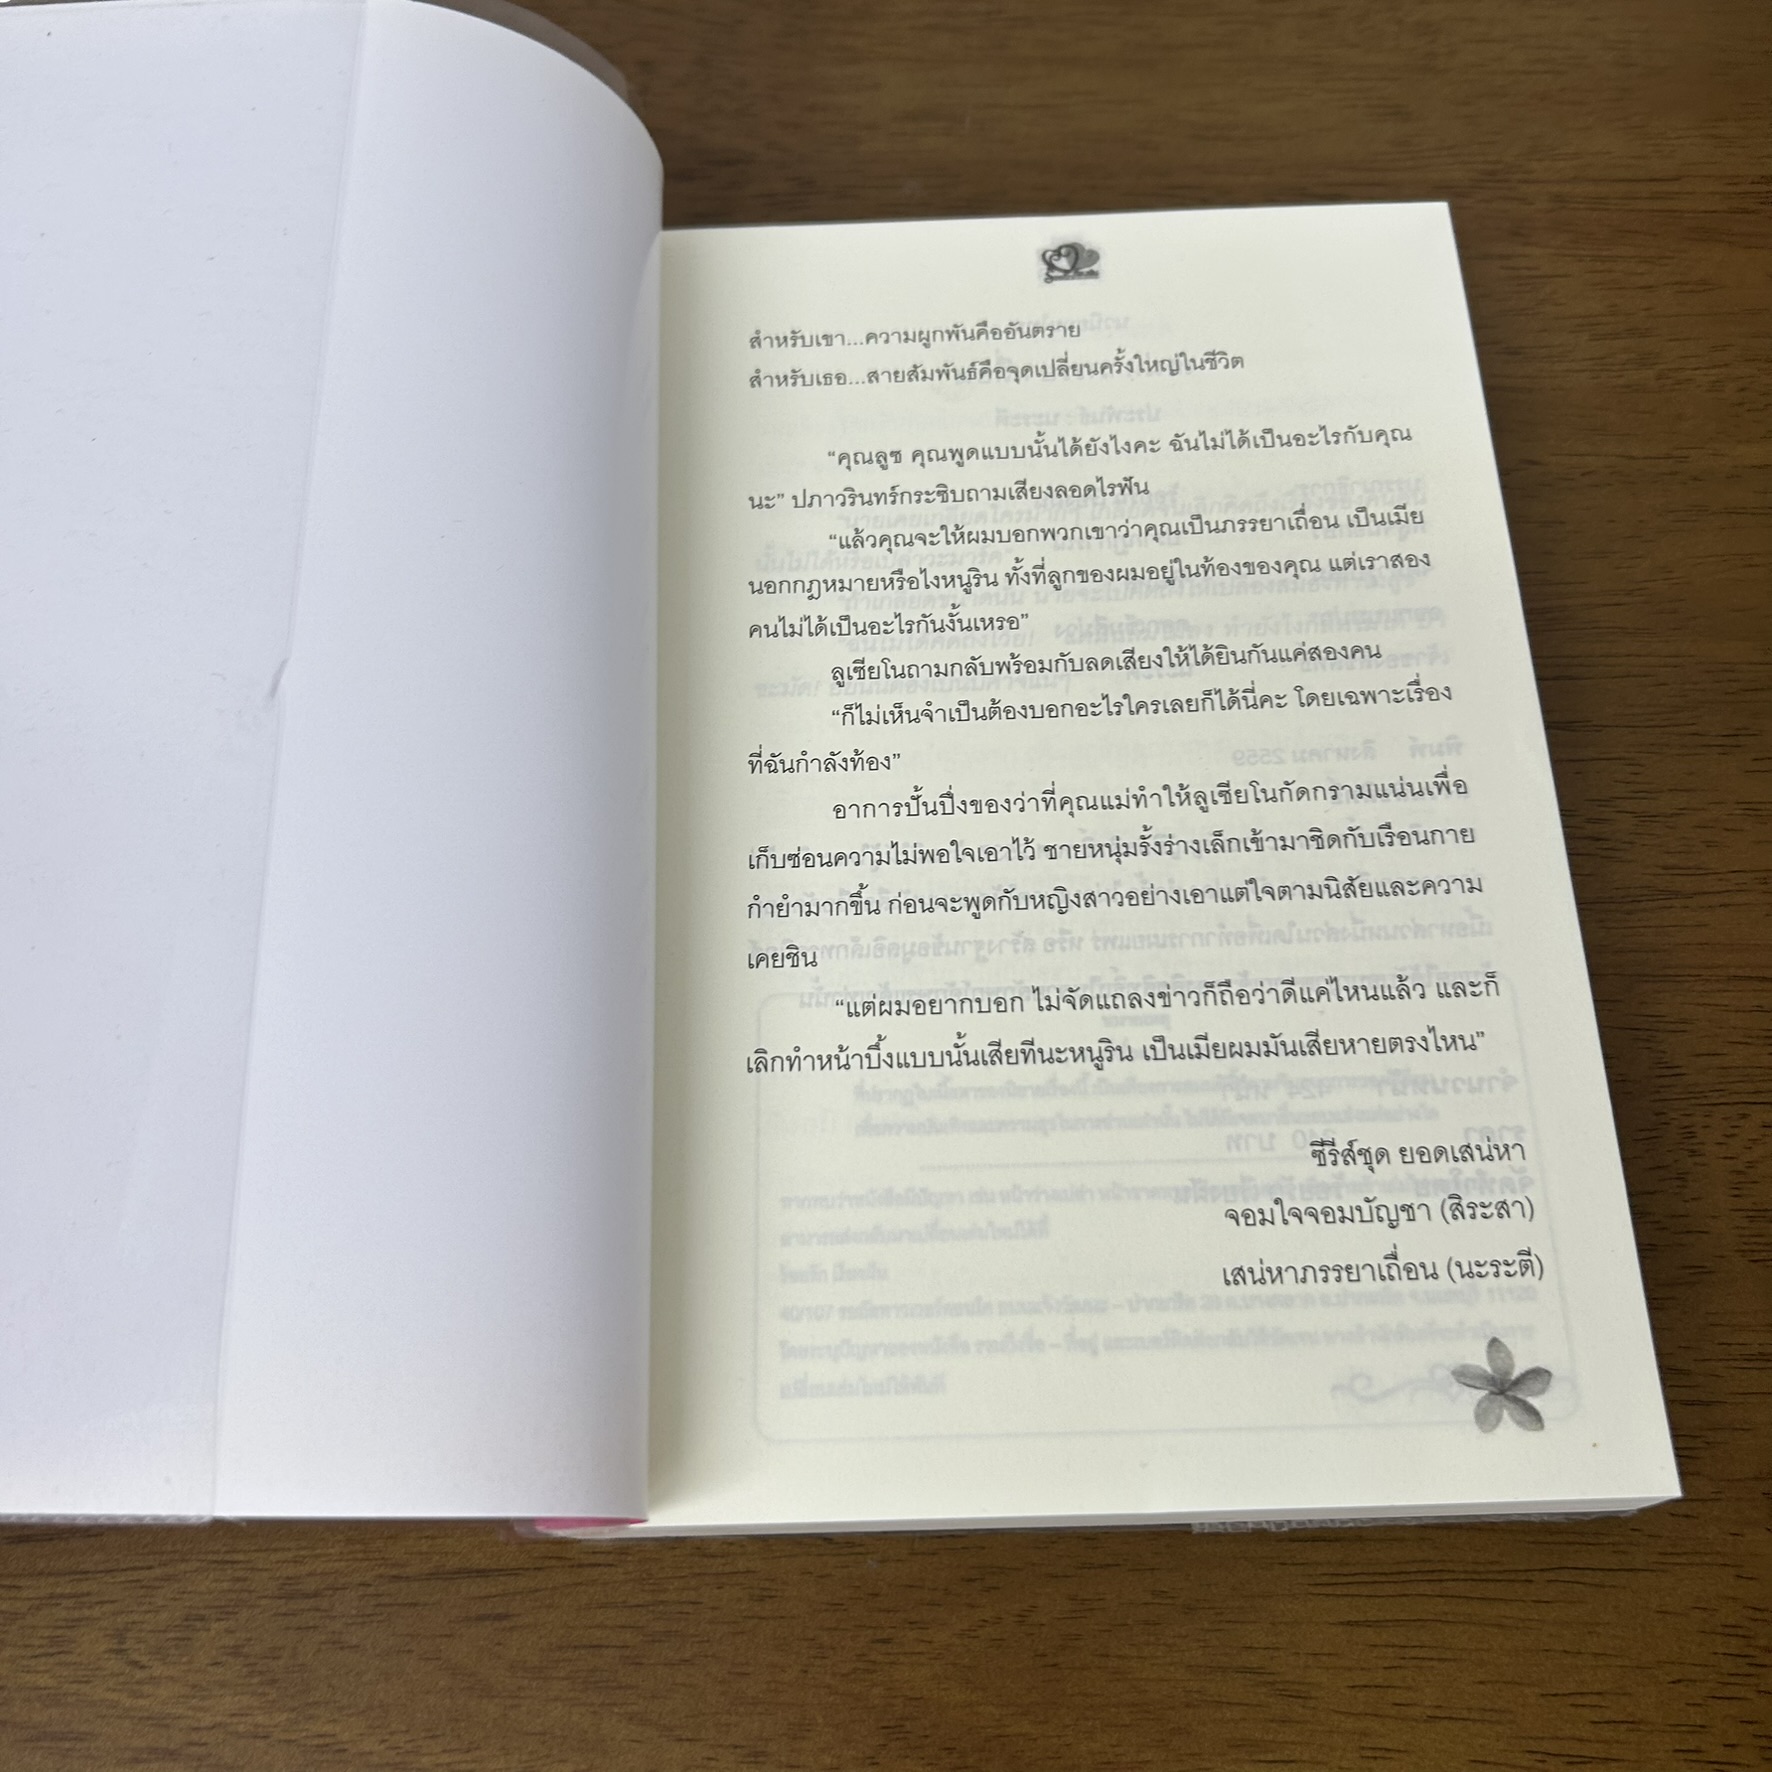 สำหรับเขา...ความผูกพันคืออันตราย
สำหรับเธอ...สายสัมพันธ์คือจุดเปลี่ยนครั้งใหญ่ในชีวิต
“คุณลูซ คุณพูดแบบนั้นได้ยังไงคะ ฉันไม่ได้เป็นอะไรกับคุณ
นะ” ปภาวรินทร์กระซิบถามเสียงลอดไรฟัน
“แล้วคุณจะให้ผมบอกพวกเขาว่าคุณเป็นภรรยาเถื่อน เป็นเมีย
นอกกฎหมายหรือไงหนูริน ทั้งที่ลูกของผมอยู่ในท้องของคุณ แต่เราสอง
คนไม่ได้เป็นอะไรกันงั้นเหรอ”
ลูเซียโนถามกลับพร้อมกับลดเสียงให้ได้ยินกันแค่สองคน
“ก็ไม่เห็นจำเป็นต้องบอกอะไรใครเลยก็ได้นี่คะ โดยเฉพาะเรื่อง
ที่ฉันกำลังท้อง”
อาการปั้นปึ่งของว่าที่คุณแม่ทำให้ลูเซียโนกัดกรามแน่นเพื่อ
เก็บซ่อนความไม่พอใจเอาไว้ ชายหนุ่มรั้งร่างเล็กเข้ามาชิดกับเรือนกาย
กำยำมากขึ้น ก่อนจะพูดกับหญิงสาวอย่างเอาแต่ใจตามนิสัยและความ
เคยชิน
“แต่ผมอยากบอก ไม่จัดแถลงข่าวก็ถือว่าดีแค่ไหนแล้ว และก็
เลิกทำหน้าบึ้งแบบนั้นเสียทีนะหนูริน เป็นเมียผมมันเสียหายตรงไหน”
ซีรีส์ชุด ยอดเสน่หา
จอมใจจอมบัญชา (สิระสา)
เสน่หาภรรยาเถื่อน (นะระตี)